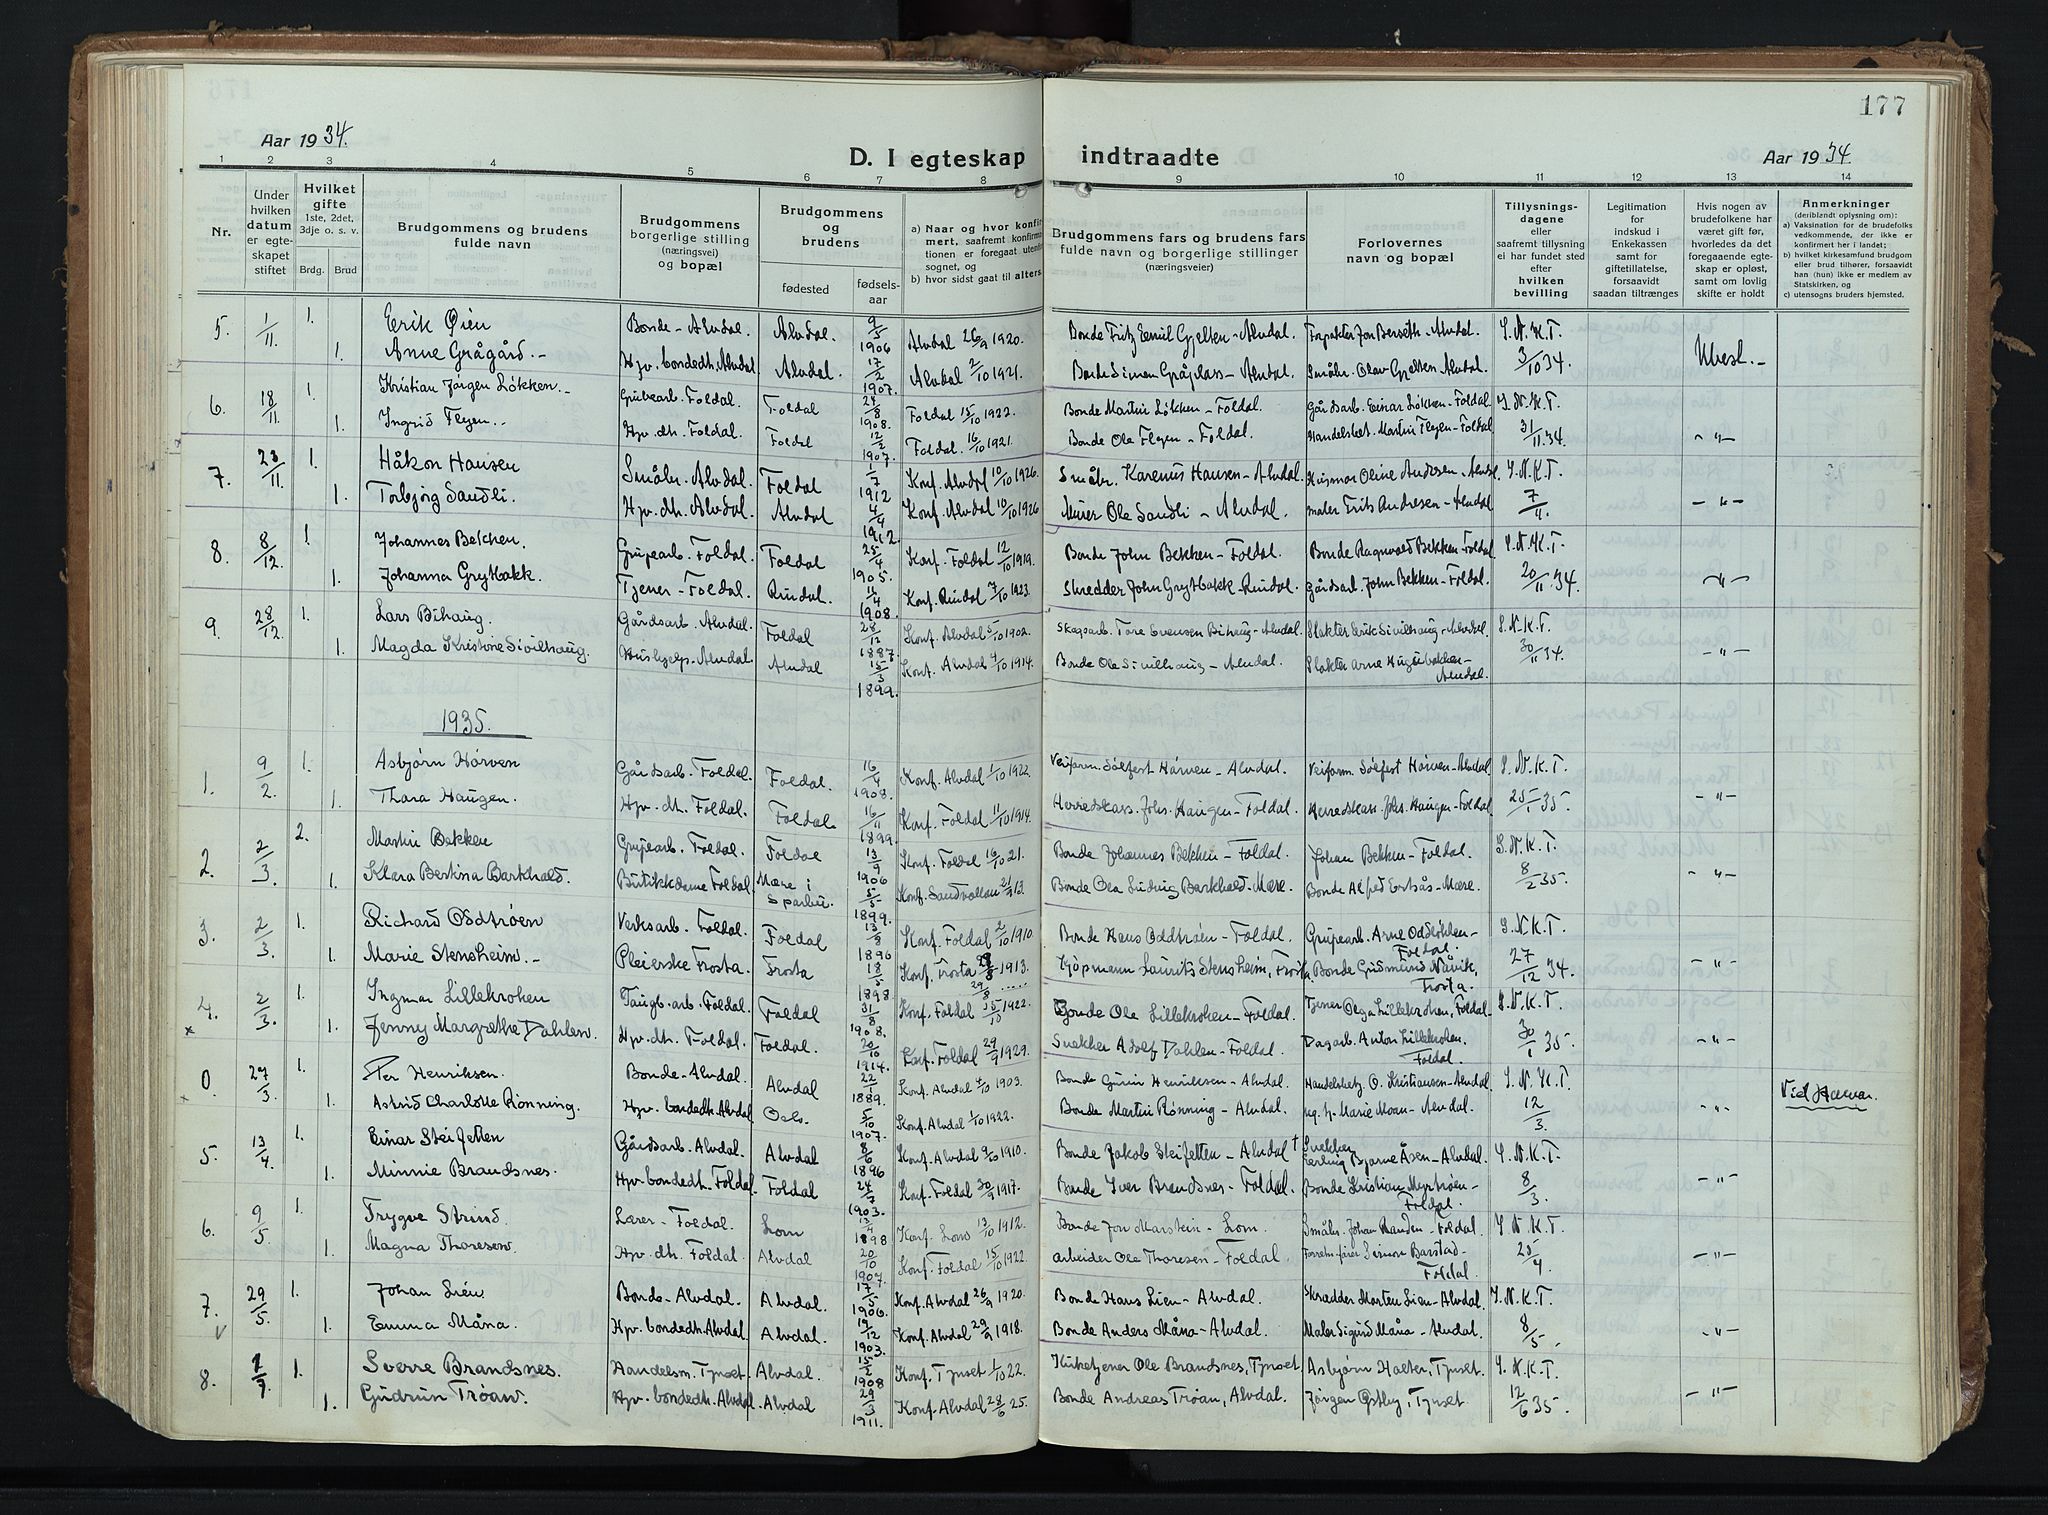 177
Aar 1934.
D. I egteskap indtraadte
Aar 1934.
1 2 3 4 5 6 7 8 9 10 11 12 13 14
Nr.
Under hvilken datum er egte-skapet stiftet
Hvilket gifte 1ste, 2det, 3dje o. s. v.
Brdg. Brud
Brudgommens og brudens fulde navn
Brudgommens borgerlige stilling (næringsvei) og bopæl
Brudgommens og brudens
fødested
fødsels-aar
a) Naar og hvor konfir
mert, saafremt konfirma
tionen er foregaat utenfo
sognet, og
b) hvor sidst gaat til alters.
Brudgommens fars og brudens fars
fulde navn og borgerlige stillinger
(næringsveier)
Forlovernes navn og bopæl
Tillysnings-dagene eller saafremt tillysning ei har fundet sted efter hvilken bevilling
Legitimation for indskud i Enkekassen samt for giftetillatelse, forsaavidt saadan tiltrænges
Hvis nogen av brudefolkene har været gift før, hvorledes da det foregaaende egte-skap er opløst, samt om lovlig skifte er holdt
Anmerkninger
(deriblandt oplysning om):
a) Vaksination for de brudefolks vedkommende, der ikke er konfirmert her i landet;
b) hvilket kirkesamfund brudgom eller brud tilhører, forsaavidt han (hun) ikke er medlem av Statskirken, og
c) utensogns bruders hjemsted.
5. 1/11 1. Erik Øien Bonde - Alvdal. Alvdal. 9/5 1906 Alvdal 26/9 1920. Bonde Fritz Emil Gjelten - Alvdal. Jon - Alvdal. S.N.K.T.
1. Anne Grågård. - Hjv. bondedt. Alvdal Alvdal. 17/2 1907. Alvdal 2/10 1921. Bonde Simen Gråplass - Alvdal. Småbr. Olav Gjelten - Alvdal. 3/10 34. Ubesl. -
6. 18/11 1. Kristian Jørgen Løkken. - Grubearb. Foldal. Foldal 24/8 1908. Foldal 15/10 1922. Bonde Martin Løkken - Foldal. Gårdsarb. Einar Løkken - Foldal S.N.K.T.
1. Ingrid Flyen. - Hjv. dt. Foldal. Foldal 12/2 1907. Foldal 16/10 1921. Bonde Ola Flyen - Foldal. Martin Flyen - Foldal 31/11 34. - " -
7. 23/11 1. Håkon Hansen Småbr. Alvdal. Foldal 1/7 1912 Konf. Alvdal 10/10 1926. Småbr. Karenus Hansen - Alvdal. Husmor Oline Andresen - Alvdal. S.N.K.T.
1. Torbjørg Sandli. Hjv. dt. Alvdal. Alvdal 4/4 1912. Konf. Alvdal 10/10 1926 Murer Ole Sandli - Alvdal. maler Erik Andresen - Alvdal 7/11. - " -
8. 8/12 1. Johannes Bekken. Grubearb. Foldal. Foldal 25/4 1905. Konf. Foldal 12/10 1919. Bonde John Bekken - Foldal. Bonde Ragnvald Bekken - Foldal S.N.K.T.
1. Johanna Grytbakk. Tjener - Foldal. Rindal. 11/4 1908. Konf. Rindal 7/10 1923. Skredder John Grytbakk - Rindal. Gårdsarb. John Bekken - Foldal. 20/11 34. - " -
9. 28/12 1. Lars Bihaug. Gårdsarb. Alvdal. Foldal 28/12 1887. Konf. Alvdal 5/10 1902. Skogsarb. Tore Evensen Bihaug - Alvdal. Slakter Erik Sivilhaug - Alvdal. S.N.K.T.
1. Magda Kristine Sivilhaug. Hushjelp. Alvdal. Alvdal 15/3 1899. Konf. Alvdal 4/10 1914. Bonde Ole Sivilhaug - Alvdal. Slakter Arne - Alvdal. 30/11 34. - " -
1935.
1. 9/2 1. Asbjørn Horven Gårdsarb. Foldal. Foldal. 16/4 1908. Konf. Alvdal 1/10 1922. Veiform. Sølfest Horven - Alvdal. Veiform. Sølfest Horven - Alvdal. S.N.K.T.
1. Thora Haugen. Hjv. dt. Foldal. Foldal. 16/11 1899. Konf. Foldal 11/10 1914. Herredskass. Johs. Haugen - Foldal. Herredskass. Johs. Haugen - Foldal 25/1 35. - " -
2. 2/3 2. Martin Bekken Grubearb. Foldal. Foldal 13/9 1906 Konf. Foldal 16/10 21. Bonde Johannes Bekken - Foldal. Johan Bekken - Foldal. S.N.K.T.
1. Klara Bertina Barkhald. Butikkdame Foldal Mære i Sparbu. 5/5 1899. Konf. Sandvollan 21/9 13. Bonde Ola Ludvig Barkhald - Mære. Bonde Alfred - Mære. 8/2 35. - " -
3. 2/3 1. Richard Oddtrøen Verksarb. Foldal. Foldal 13/8 1896 Konf. Foldal 2/10 1910. Bonde Hans Oddtrøen - Foldal. Grubearb. Arne - Foldal. S.N.K.T.
1. Marie Stensheim. - Pleierske Frosta. Frosta 18/5 1898. Konf. Frosta 1913. 29/8 ..... Kjøpmann Laurits Stensheim, Frosta. Bonde Gudmund Nåvik, Frosta. 27/12 34. - " -
4. 2/3 1. Ingmar Lillekroken Foldal. Foldal 31/8 1908. Konf. Foldal 15/10 1922. Bonde Ola Lillekroken - Foldal. Tjener Olga Lillekroken, Foldal - S.N.K.T.
× 1. Jenny Margrethe Dahlen. Hjv. dt. Foldal. Foldal. 20/10 1914. Konf. Foldal 29/9 1929. Snekker Adolf Dahlen - Foldal. Dagarb. Anton Lillekroken, Foldal. 30/1 35. - " -
0. 27/3 1. Per Henriksen. Bonde - Alvdal. Alvdal 22/1 1889. Konf. Alvdal 4/10 1903. Bonde Henriksen - Alvdal. O. Kristiansen - Alvdal S.N.K.T.
× 1. Astrid Charlotte Rønning. Hjv. bondedt. Alvdal Oslo. 5/10 1907. Konf. Alvdal 1/10 1922. Bonde Martin Rønning - Alvdal. Marie Moan - Alvdal. 12/3. - " -
5. 13/4 1. Einar Steifetten Gårdsarb. Alvdal. Alvdal 8/6 1896 Konf. Alvdal 9/10 1910. Bonde Jakob Steifetten - Alvdal † Snekker Erling Bjarne Åsen - Alvdal. S.N.K.T.
1. Minnie Brandsnes. Hjv. bondedt. Foldal. Foldal 24/7 1903. Konf. Foldal 30/9 1917. Bonde Iver Brandsnes - Foldal. Bonde Kristian Myrtrøen - Foldal. 8/3. - " -
6. 9/5 1. Trygve Strind. Lærer - Foldal. Lom 13/4 1898 Konf. Lom 13/10 1912. Bonde Jon Marstein - Lom. Småbr. Johan Randen - Foldal S.N.K.T.
1. Magna Thoresen. Hjv. dt. Foldal. Alvdal 20/10 1907. Konf. Foldal 15/10 1922. arbeider Ole Thoresen - Foldal. Simon Barstad - Foldal. 25/4. - " -
7. 29/5 1. Johan Lien Bonde - Alvdal. Alvdal. 17/5 1906. Konf. Alvdal 26/9 1920. Bonde Hans Lien - Alvdal. Skredder Morten Lien - Alvdal S.N.K.T.
1. Emma Måna. Hjv. bondedt. Alvdal. Alvdal. 19/12 1903. Konf. Alvdal 29/9 1918. Bonde Anders Måna - Alvdal. Maler Sigurd Måna - Alvdal. 8/5. - " -
8. 1/7 1. Sverre Brandsnes. Handelsm. Tynset. Alvdal. 15/2 1908 Konf. Tynset 1/10 22. Kirketjener Ole Brandsnes, Tynset Asbjørn Haeter, Tynset. S.N.K.T.
1. Gudrun Trøan. Hjv. bondedt. Alvdal. Alvdal 29/3 1911. Konf. Alvdal 28/6 25. Bonde Andreas Trøan, Alvdal. Jørgen Østby, Tynset. 12/6 35. - " -